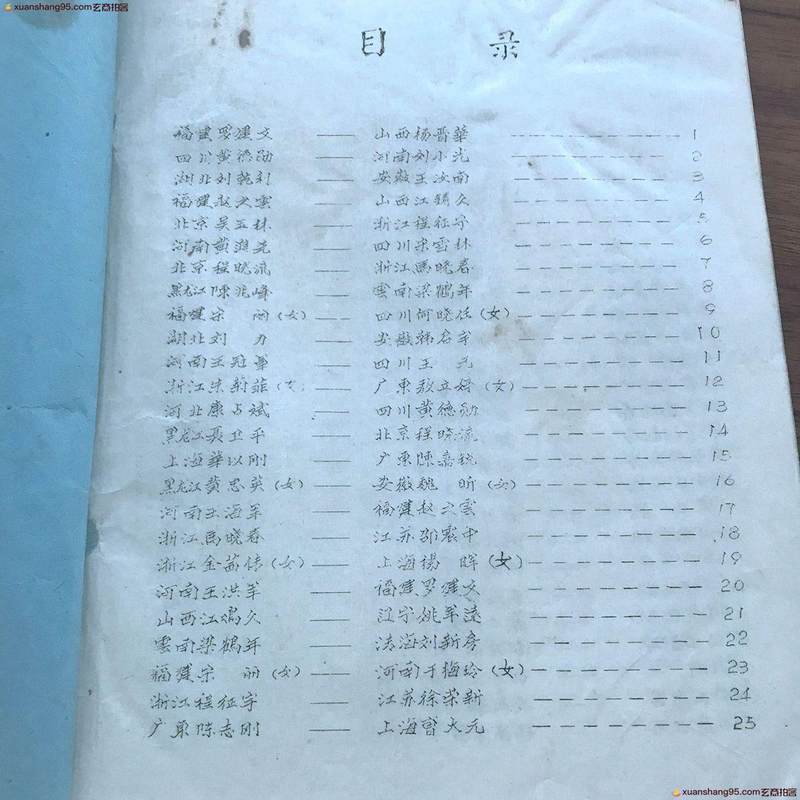 xuanshang95.com玄商拍客
xuanshang95.com玄商拍客
目 录
福建罗建文 —— 山西杨晋華 1
四川黄德勋 —— 河南刘小光 2
湖北刘乾利 —— 安徽王汝南 3
福建赵之雲 —— 山西江鸣久 4
北京吴玉林 —— 浙江程征宇 5
河南黄進先 —— 四川宋雲林 6
北京程晓流 —— 浙江馬晓春 7
黑龙江陳兆峰 —— 雲南梁鶴年 8
福建宗 丽(女) —— 四川何晓任(女) 9
湖北刘 力 —— 安徽韩启宇 10
河南王冠軍 —— 四川王 元 11
浙江朱菊菲(女) —— 广東敖立婷(女) 12
河北康占斌 —— 四川黄德勋 13
黑龙江聂卫平 —— 北京程晓流 14
上海華以刚 —— 广東陳嘉锐 15
黑龙江黄思英(女) —— 安徽魏 昕(女) 16
河南王海军 —— 福建赵之雲 17
浙江馬晓春 —— 江苏邵震中 18
浙江金茜倩(女) —— 上海杨 晖(女) 19
河南王洪军 —— 福建罗建文 20
山西江鸣久 —— 辽宁姚军 21
雲南梁鶴年 —— 刘新 22
福建宗 丽(女) —— 河南于梅玲(女) 23
浙江程征宇 —— 江苏徐荣新 24
广東陈志刚 —— 上海曹大元 25
xuanshang95.com玄商拍客